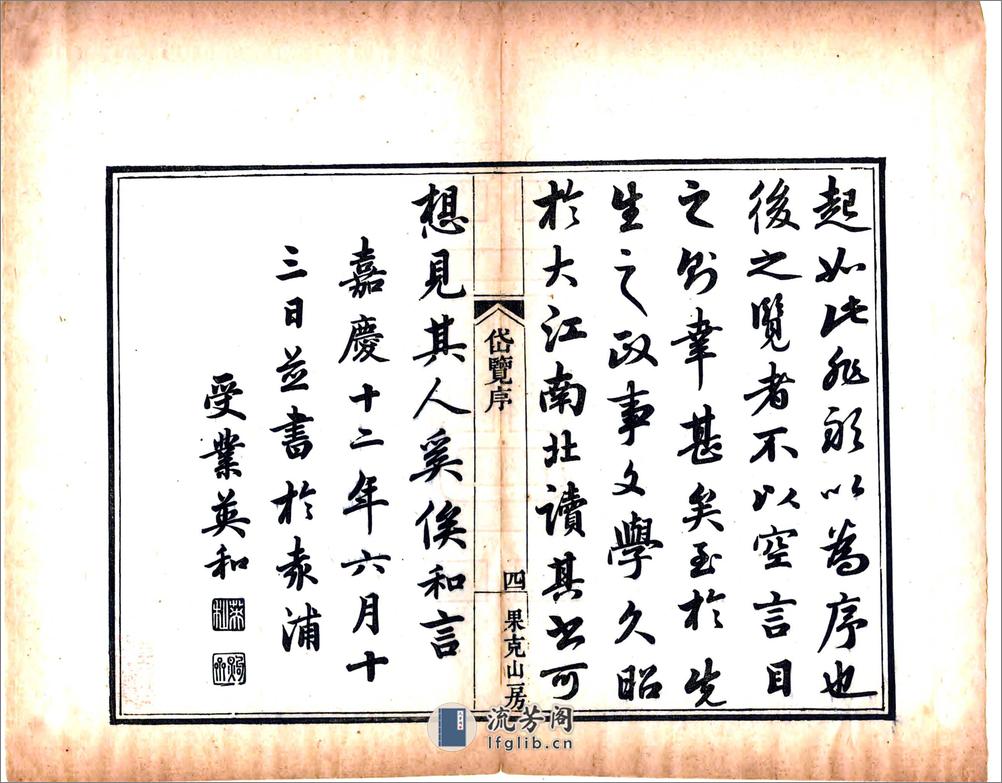 起如此非敢以為序也
後之覽者不以空言目
之則幸甚矣至於先
生之政事文學久昭
於大江南北讀其書可
想見其人奚俟和言
嘉慶十二年六月十
三日並書於袁浦
受業英和
岱覽序
四
果克山房
流芳阁
lfglib.cn